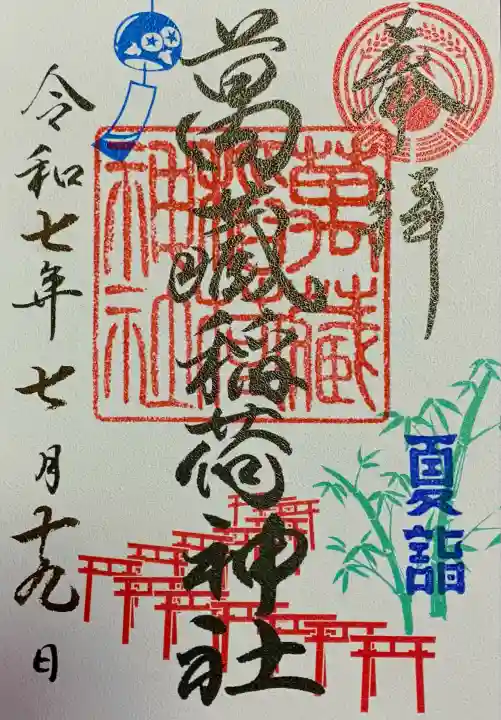 奉拝
夏詣
萬蔵稲荷神社
萬蔵
稲荷
神社
令和七年七月十九日